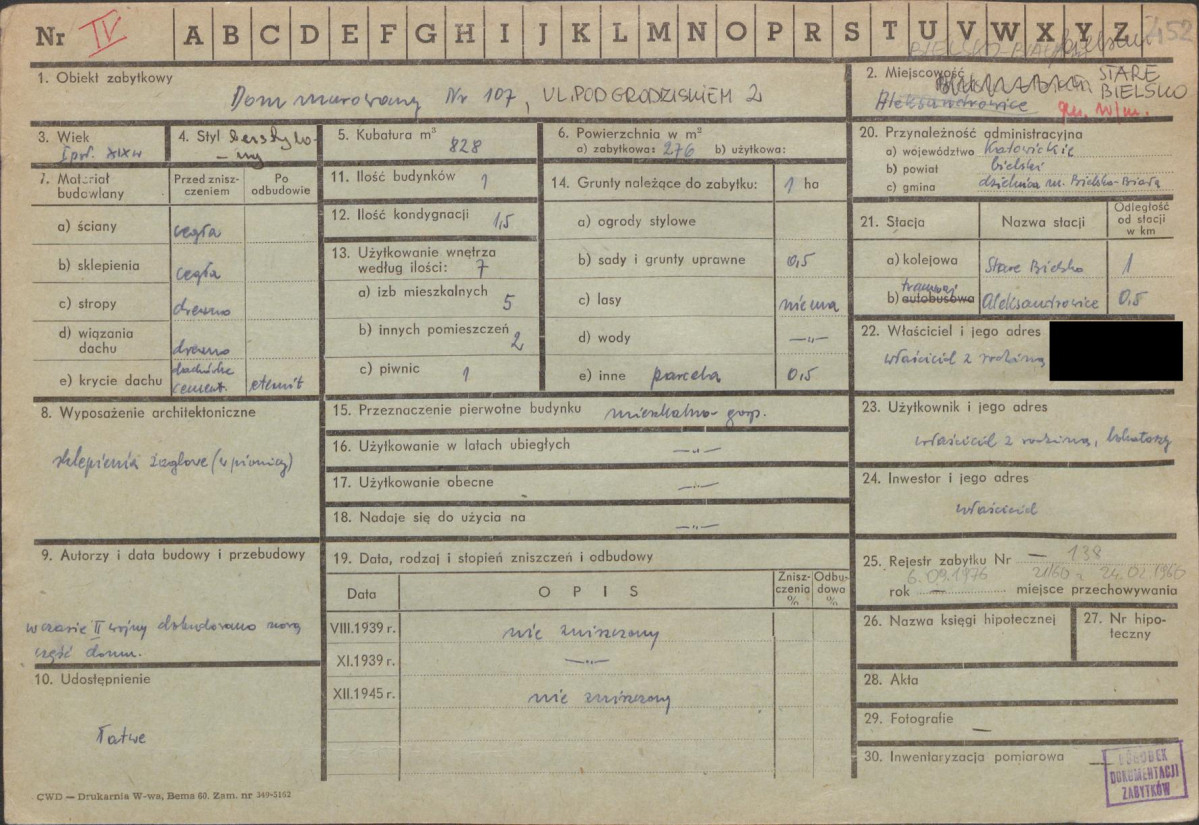 Nr IV A B C D E F G H I J K L M N O P R S T U V W X Y Z 452
BIELSKO-BIAŁA
1. Obiekt zabytkowy
Dom murowany Nr 107, UL. POD GRODZISKIEM 2
2. Miejscowość
STARE BIELSKO
Aleksandrowice
gm. w/m.
3. Wiek
I poł. XIX w
4. Styl bezstylo-
wy
5. Kubatura m³
828
6. Powierzchnia w m²
a) zabytkowa: 276 b) użytkowa:
7. Materiał budowlany
Przed znisz-
czeniem
Po
odbudowie
a) ściany cegła
b) sklepienia cegła
c) stropy drewno
d) wiązania
dachu drewno
e) krycie dachu dachówka
cement. eternit
8. Wyposażenie architektoniczne
sklepienia żaglowe (w piwnicy)
9. Autorzy i data budowy i przebudowy
w czasie II wojny dobudowano nową
część domu.
10. Udostępnienie
Łatwe
11. Ilość budynków 1
12. Ilość kondygnacji 1,5
13. Użytkowanie wnętrza
według ilości: 7
a) izb mieszkalnych 5
b) innych pomieszczeń 2
c) piwnic 1
14. Grunty należące do zabytku: 1 ha
a) ogrody stylowe
b) sady i grunty uprawne 0,5
c) lasy niema
d) wody —„—
e) inne parcela 0,5
15. Przeznaczenie pierwotne budynku mieszkalno-gosp.
16. Użytkowanie w latach ubiegłych —„—
17. Użytkowanie obecne —„—
18. Nadaje się do użycia na —„—
19. Data, rodzaj i stopień zniszczeń i odbudowy
Data OPIS Znisz-
czenia
%
Odbu-
dowa
%
VIII.1939 r. nie zniszczony
XI.1939 r. —„—
XII.1945 r. nie zniszczony
20. Przynależność administracyjna
a) województwo Katowickie
b) powiat bielski
c) gmina dzielnica m. Bielsko-Biała
21. Stacja Nazwa stacji Odległość
od stacji
w km
a) kolejowa Stare Bielsko 1
tramwaj
b) autobusowa Aleksandrowice 0,5
22. Właściciel i jego adres
właściciel z rodziną
23. Użytkownik i jego adres
właściciel z rodziną, lokatorzy
24. Inwestor i jego adres
właściciel
25. Rejestr zabytku Nr — 138
6.09.1976 21/60 z 24.02.1960
rok — miejsce przechowywania
26. Nazwa księgi hipotecznej
27. Nr hipo-
teczny
28. Akta
29. Fotografie —
30. Inwentaryzacja pomiarowa —
OŚRODEK
DOKUMENTACJI
ZABYTKÓW
CWD — Drukarnia W-wa, Bema 60. Zam. nr 349-5162